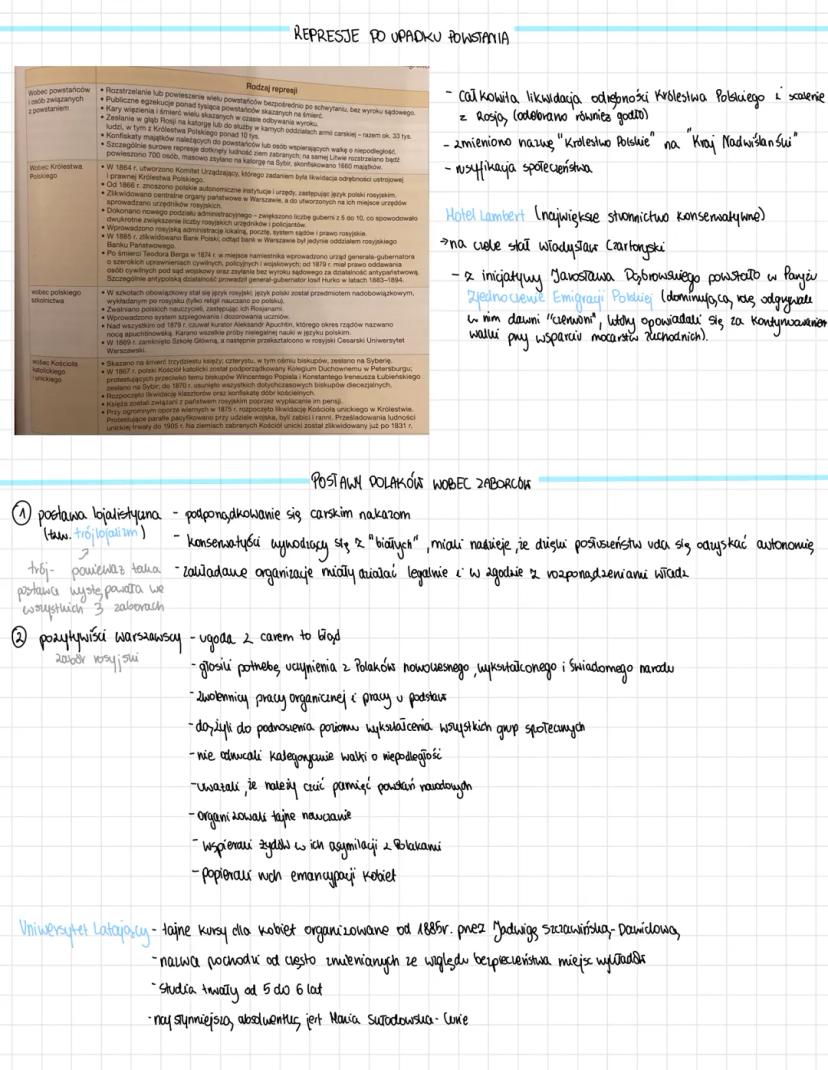 REPRESJE PO UPADKU POWSTANIA
Rodzaj represji
Wobec powstańców
i osób związanych
z powstaniem
• Rozstrzelanie lub powieszenie wielu powstańców bezpośrednio po schwytaniu, bez wyroku sądowego.
• Publiczne egzekucje ponad tysiąca powstańców skazanych na śmierć.
• Kary więzienia i śmierć wielu skazanych w czasie odbywania wyroku.
• Zesłanie w głąb Rosji na katorgę lub do służby w karnych oddziałach armii carskiej – razem ok. 33 tys.
ludzi, w tym z Królestwa Polskiego ponad 10 tys.
• Konfiskaty majątków należących do powstańców lub osób wspierających walkę o niepodległość.
• Szczególnie surowe represje dotknęły ludność ziem zabranych; na samej Litwie rozstrzelano bądź
powieszono 700 osób, masowo zsyłano na katorgę na Sybir, skonfiskowano 1660 majątków.
Wobec Królestwa
Polskiego
• W 1864 r. utworzono Komitet Urządzający, którego zadaniem była likwidacja odrębności ustrojowej
i prawnej Królestwa Polskiego.
• Od 1866 r. znoszono polskie autonomiczne instytucje i urzędy, zastępując język polski rosyjskim.
• Zlikwidowano centralne organy państwowe w Warszawie, a do utworzonych na ich miejsce urzędów
sprowadzano urzędników rosyjskich.
• Dokonano nowego podziału administracyjnego – zwiększono liczbę guberni z 5 do 10, co spowodowało
dwukrotne zwiększenie liczby rosyjskich urzędników i policjantów.
• Wprowadzono rosyjską administrację lokalną, pocztę, system sądów i prawo rosyjskie.
• W 1885 r. zlikwidowano Bank Polski; odtąd bank w Warszawie był jedynie oddziałem rosyjskiego
Banku Państwowego.
• Po śmierci Teodora Berga w 1874 r. w miejsce namiestnika wprowadzono urząd generała-gubernatora
o szerokich uprawnieniach cywilnych, policyjnych i wojskowych; od 1879 r. miał prawo oddawania
osób cywilnych pod sąd wojskowy oraz zsyłania bez wyroku sądowego za działalność antypaństwową.
Szczególnie antypolską działalność prowadził generał-gubernator Iosif Hurko w latach 1883–1894.
wobec polskiego
szkolnictwa
• W szkołach obowiązkowy stał się język rosyjski; język polski został przedmiotem nadobowiązkowym,
wykładanym po rosyjsku (tylko religii nauczano po polsku).
• Zwalniano polskich nauczycieli, zastępując ich Rosjanami.
• Wprowadzono system szpiegowania i dozorowania uczniów.
• Nad wszystkim od 1879 r. czuwał kurator Aleksandr Apuchtin, którego okres rządów nazwano
nocą apuchtinowską. Karano wszelkie próby nielegalnej nauki w języku polskim.
• W 1869 r. zamknięto Szkołę Główną, a następnie przekształcono w rosyjski Cesarski Uniwersytet
Warszawski.
wobec Kościoła
katolickiego
i unickiego
• Skazano na śmierć trzydziestu księży; czterystu, w tym ośmiu biskupów, zesłano na Syberię.
• W 1867 r. polski Kościół katolicki został podporządkowany Kolegium Duchownemu w Petersburgu;
protestujących przeciwko temu biskupów Wincentego Popiela i Konstantego Ireneusza Łubieńskiego
zesłano na Sybir; do 1870 r. usunięto wszystkich dotychczasowych biskupów diecezjalnych.
• Rozpoczęto likwidację klasztorów oraz konfiskatę dóbr kościelnych.
• Księża zostali związani z państwem rosyjskim poprzez wypłacanie im pensji.
• Przy ogromnym oporze wiernych w 1875 r. rozpoczęto likwidację Kościoła unickiego w Królestwie.
Protestujące parafie pacyfikowano przy udziale wojska, byli zabici i ranni. Prześladowania ludności
unickiej trwały do 1905 r. Na ziemiach zabranych Kościół unicki został zlikwidowany już po 1831 r.
- całkowita likwidacja odrębności Królestwa Polskiego i scalenie
z Rosją (odebrano również godło)
- zmieniono nazwę "Królestwo Polskie" na "Kraj Nadwiślański"
- rusyfikacja społeczeństwa
Hotel Lambert (największe stronnictwo konserwatywne)
→ na czele stał Władysław Czartoryski
- z inicjatywy Jarosława Dąbrowskiego powstało w Paryżu
Zjednoczenie Emigracji Polskiej (dominującą rolę odgrywali
w nim dawni "czerwoni", którzy opowiadali się za kontynuowaniem
walki przy wsparciu mocarstw zachodnich).
POSTAWY POLAKÓW WOBEC ZABORCÓW
① postawa lojalistyczna - podporządkowanie się carskim nakazom
(tzw. trójlojalizm)
- konserwatyści wywodzący się z "białych", mieli nadzieje, że dzięki posłuszeństwu uda się odzyskać autonomię
trój- ponieważ taka
postawa występowała we
wszystkich 3 zaborach
- zakładane organizacje miały działać legalnie i w zgodzie z rozporządzeniami władz
② pozytywiści warszawscy - ugoda z carem to błąd
zabór rosyjski
- głosili potrzebę uczynienia z Polaków nowoczesnego, wykształconego i świadomego narodu
- zwolennicy pracy organicznej i pracy u podstaw
- dążyli do podnoszenia poziomu wykształcenia wszystkich grup społecznych
- nie odrzucali kategorycznie walki o niepodległość
- uważali, że należy czcić pamięć powstań narodowych
- organizowali tajne nauczanie
- wspierali żydów w ich asymilacji z Polakami
- popierali ruch emancypacji kobiet
Uniwersytet Latający - tajne kursy dla kobiet organizowane od 1885r. przez Jadwigę Szczawińską-Dawidową
- nazwa pochodzi od często zmienianych ze względu bezpieczeństwa miejsc wykładów
- studia trwały od 5 do 6 lat
- najsłynniejszą absolwentką jest Maria Skłodowska-Curie